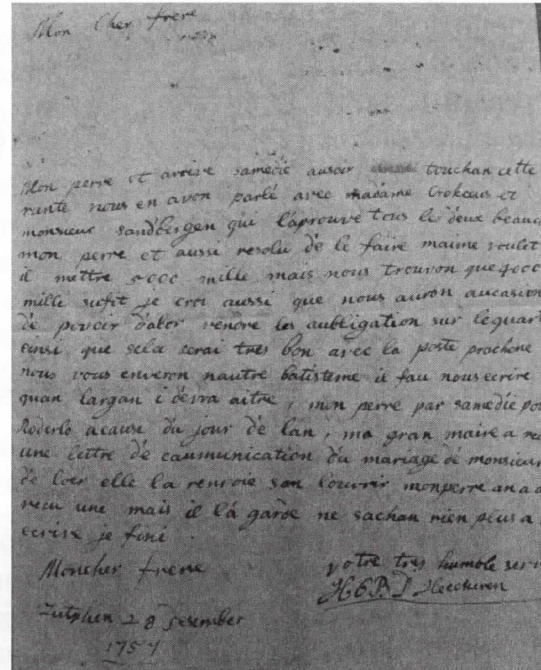 Mon Cher frere
Mon perre et arrive samedie ausoir touchan cette
rante nous en avon parlé avec madame Crokceus et
monsieur sandbergen qui l'aprouve tous le deux beauc
mon perre et aussi resolu de le faire maime voulot
il mettre 5000 mille mais nous trouvon que 4000
mille sufit je croi aussi que nous auron aucasion
de povoir d'abor vendre les aubligation sur lequart
einsi que sela serai tres bon avec la poste prochene
nous vous enveron nautre batisteme il fau nous ecrire
quan largan i devra aitre, mon perre par samedie pou
Roderlo acause du jour de lan, ma gran maire a re
une lettre de caumunication du mariage de monsieur
de loer elle la renvoie san louvrir monperre an a a
recu une mais il la garde ne sachan rien plus a
ecrire je fini
Moncher frere
votre tres humble serv
Heeckeren
Zutphen 28 desember
1757